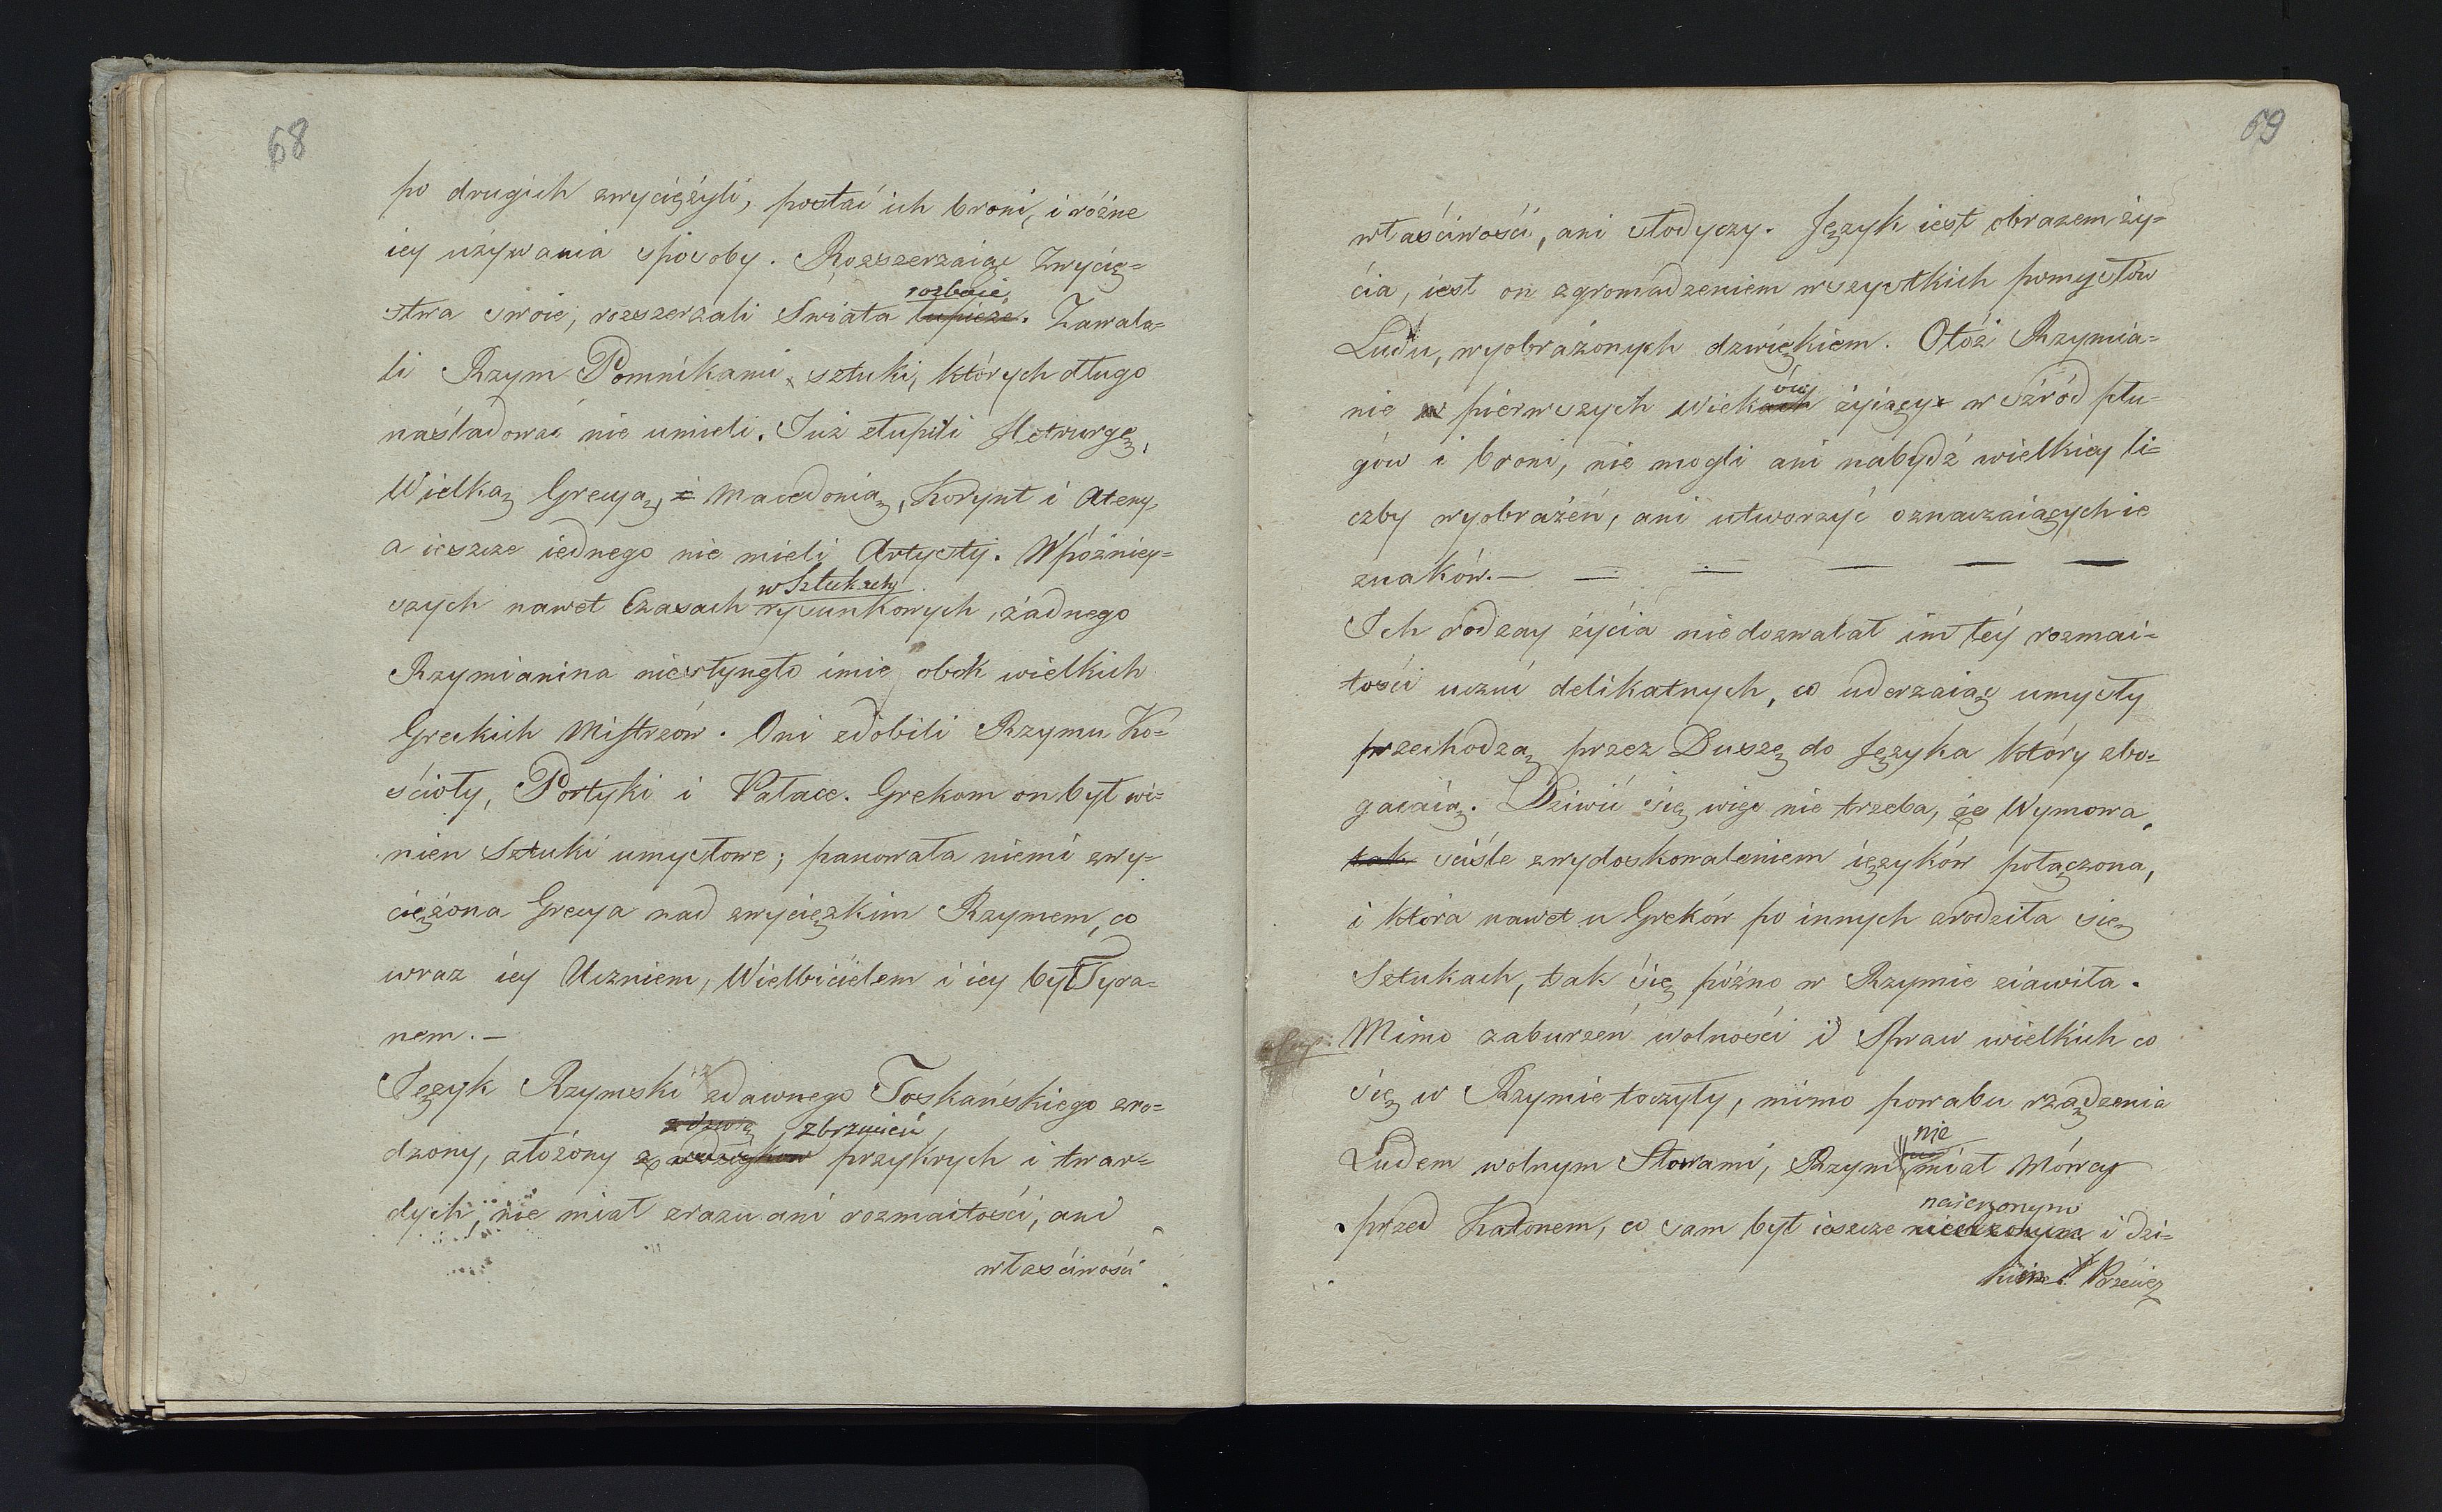 68
po drugich zwyciężyli, postać ich broni, i różne
iey używania sposoby. Rozszerzaiąc Zwycię=
rozboie,
stwa swoie, rozszerzali Świata łupieże. Zawala=
li Rzym Pomnikami sztuki, których długo
naśladować nie umieli. Już złupili Hetrurgę,
Wielką Grecyą, i Macedonią, Korynt i Ateny,
a ieszcze iednego nie mieli Artysty. Wpóźniey=
w Sztukach
szych nawet Czasach rysunkowych, żadnego
Rzymianina niesłynęło imie obok wielkich
Greckich Mistrzów. Oni zdobili Rzymu Ko=
ścioły, Portyki i Pałace. Grekom on był wi=
nien Sztuki umysłowe; panowała niemi zwy=
ciężona Grecya nad zwycięzkim Rzymem, co
wraz iey Uczniem, Wielbicielem i iey był Tyra=
nem.—
Język Rzymski zdawnego Toskańskiego zro=
zbrzmień
dzony, złożony z dzwięków przykrych i twar=
dych, nie miał zrazu ani rozmaitości, ani
własciwości
69
właściwości, ani słodyczy. Język iest obrazem ży=
cia, iest on zgromadzeniem wszystkich pomysłów
Ludu, wyobrażonych dzwiękiem. Otóż Rzymia=
ów
nie w pierwszych wiekach żyiący wśzród płu=
gów i broni, nie mogli ani nabydź wielkiey li=
czby wyobrażeń, ani utworzyć oznaczaiących ie
znaków. — — — — — —
Ich rodzay życia niedozwalał im téy rozmai=
tości uczuć delikatnych, co uderzaiąc umysły
przechodzą przez Duszę do Języka który zbo=
gacaią. Dziwić się więc nie trzeba, że Wymowa,
tak ściśle zwydoskonaleniem ięzyków połączona,
i która nawet u Greków po innych zrodziła się
Sztukach, tak się późno w Rzymie ziawiła.
Mimo zaburzeń wolności i Spraw wielkich co
się w Rzymie toczyły, mimo powabu rządzenia
nie
Ludem wolnym Słowami, Rzym miał Mówcy
naieżonym
przed Katonem, co sam był ieszcze nieokrzesanym i dzi=
kim. Przeciez